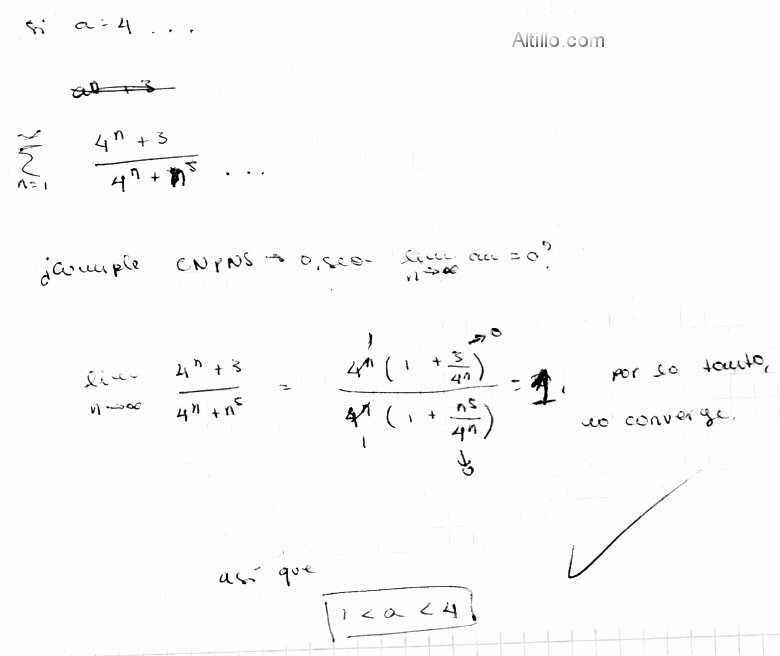 si a=4 ...
Altillo.com
aⁿ + 3
∞ Σ n=1 (4ⁿ + 3)/(4ⁿ + n⁵) ...
¿Cumple CNPNS → o sea lim n→∞ an = 0?
lim n→∞ (4ⁿ + 3)/(4ⁿ + n⁵) = 4ⁿ (1 + 3/4ⁿ)→0 / 4ⁿ (1 + n⁵/4ⁿ)→0 = 1. por lo tanto,
no converge.
así que
1 < a < 4